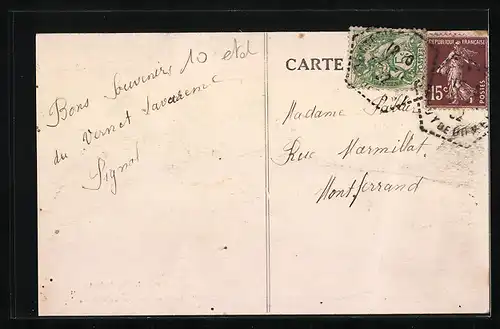 Bons Souvenirs
du Vernet Lavarenne
Signol
CARTE
RÉPUBLIQUE FRANÇAISE
15c
POSTES
Madame
Rue Marmillat
Montferrand